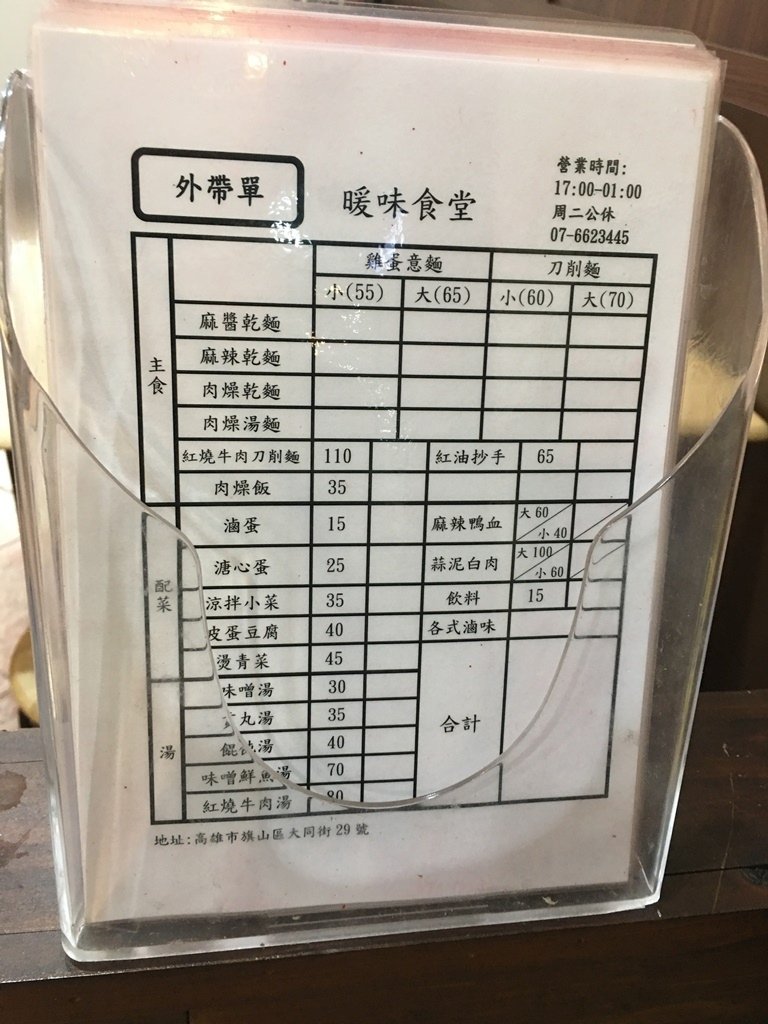 外帶單
暖味食堂
營業時間:
17:00-01:00
周二公休
07-6623445
雞蛋意麵 刀削麵
小(55) 大(65) 小(60) 大(70)
主食
麻醬乾麵
麻辣乾麵
肉燥乾麵
肉燥湯麵
紅燒牛肉刀削麵 110 紅油抄手 65
肉燥飯 35
配菜
滷蛋 15 麻辣鴨血 大60 小40
溏心蛋 25 蒜泥白肉 大100 小60
涼拌小菜 35 飲料 15
皮蛋豆腐 40 各式滷味
燙青菜 45
湯
味噌湯 30
丸湯 35 合計
餛飩湯 40
味噌鮮魚湯 70
紅燒牛肉湯 80
地址:高雄市旗山區大同街29號